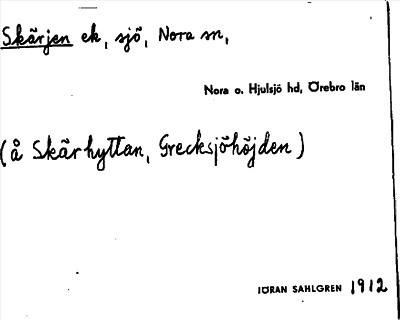 Skärjen ek, sjö, Nora sn,
Nora o. Hjulsjö hd, Örebro län
(å Skärhyttan, Grecksjöhöjden)
JÖRAN SAHLGREN 1912